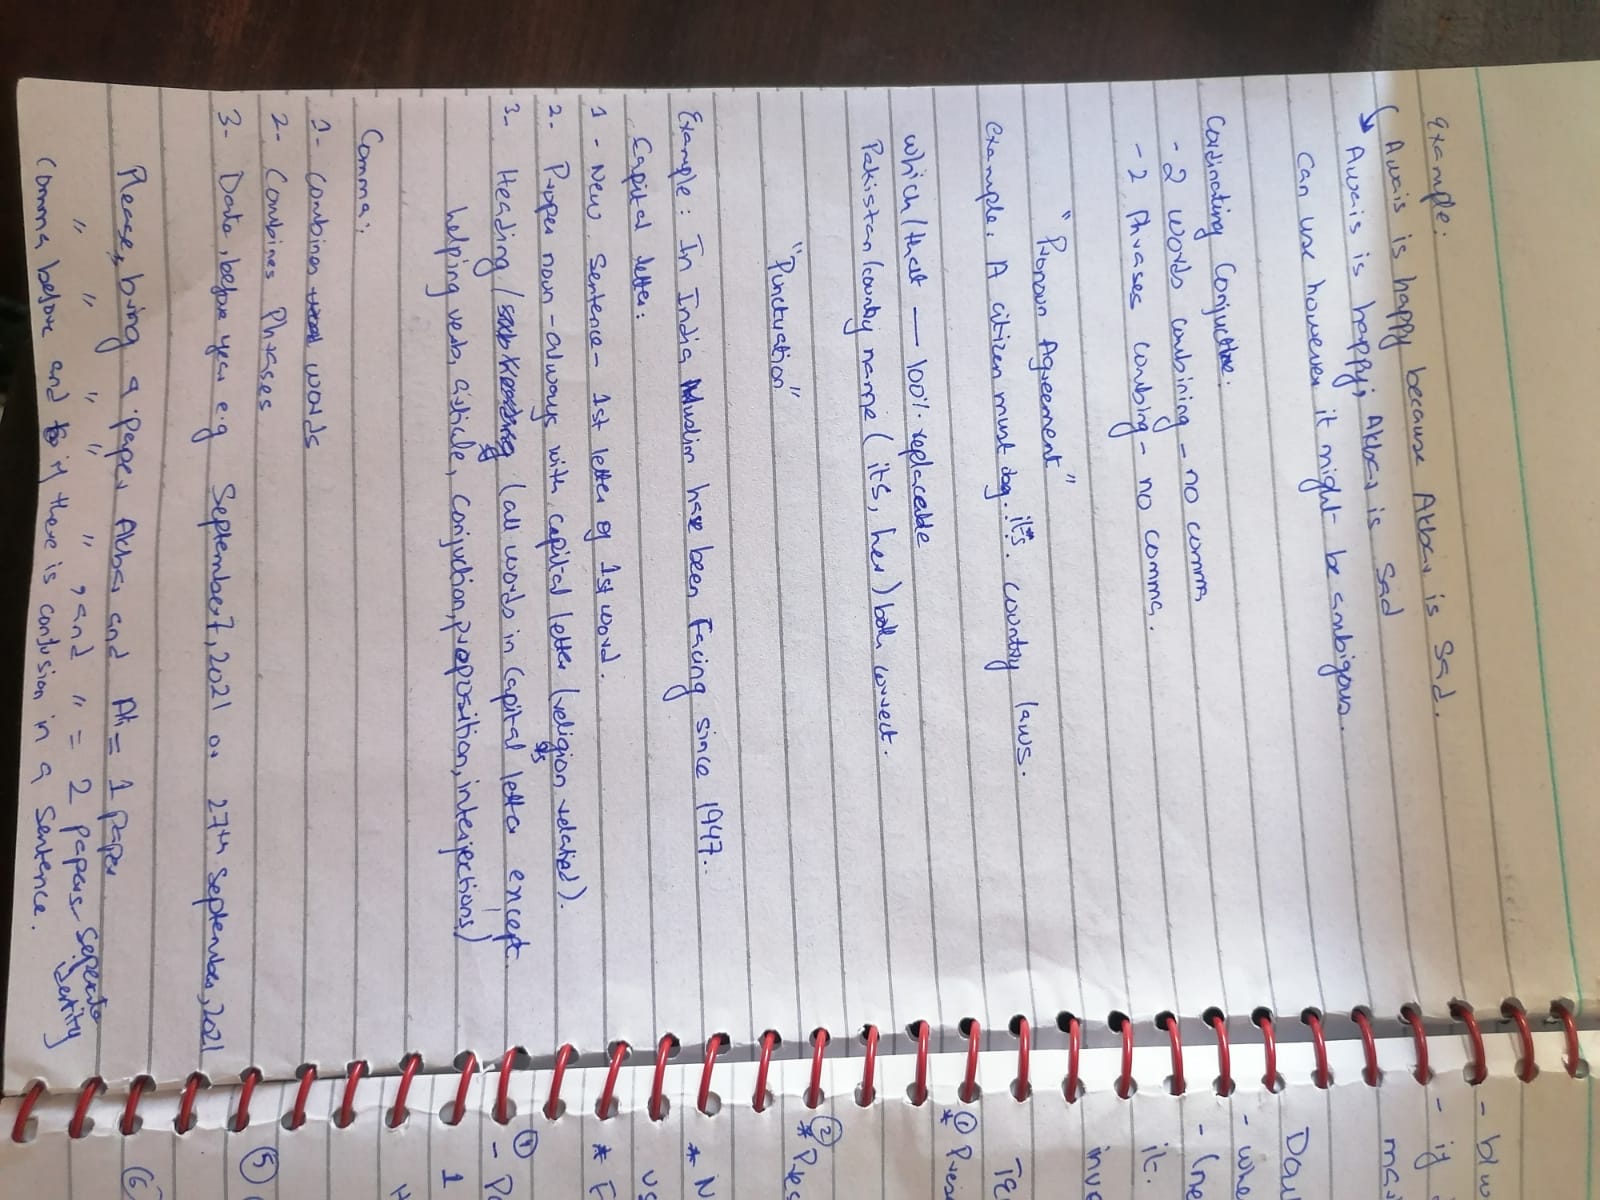 Example:
Awais is happy because Akbar is Sad.
Awais is happy; Akbar is Sad
Can use however it might be ambigous.
Cordinating Conjuctive:
- 2 words combining - no comma
- 2 Phrases combing - no comma.
"Pronoun Agreement"
Example: A citizen must obey ..its.. country laws.
which/that — 100% replaceable
Pakistan/country name (its, her) both correct.
"Punctuation"
Example: In India Muslim have been Facing since 1947..
Capital letter:
1 - New Sentence - 1st letter of 1st word.
2- Propper noun - always with capital letter (religion related).
3- Heading / (all words in Capital letter except
helping verb, article, Conjuction, preposition, interjections)
Comma:
1- Combines words
2- Combines Phrases
3- Date, before year e.g September 7, 2021 or 27th September, 2021
Please, bring a paper Akbar and Ali = 1 paper
" " " " " , and " = 2 papers seperate identity
Comma before and if there is confusion in a Sentence.
- b/w
- if
Dou
- whe
- (ne
it.
inve
① Pres
② * Pres
* N
us
* F
④
1
⑤
⑥